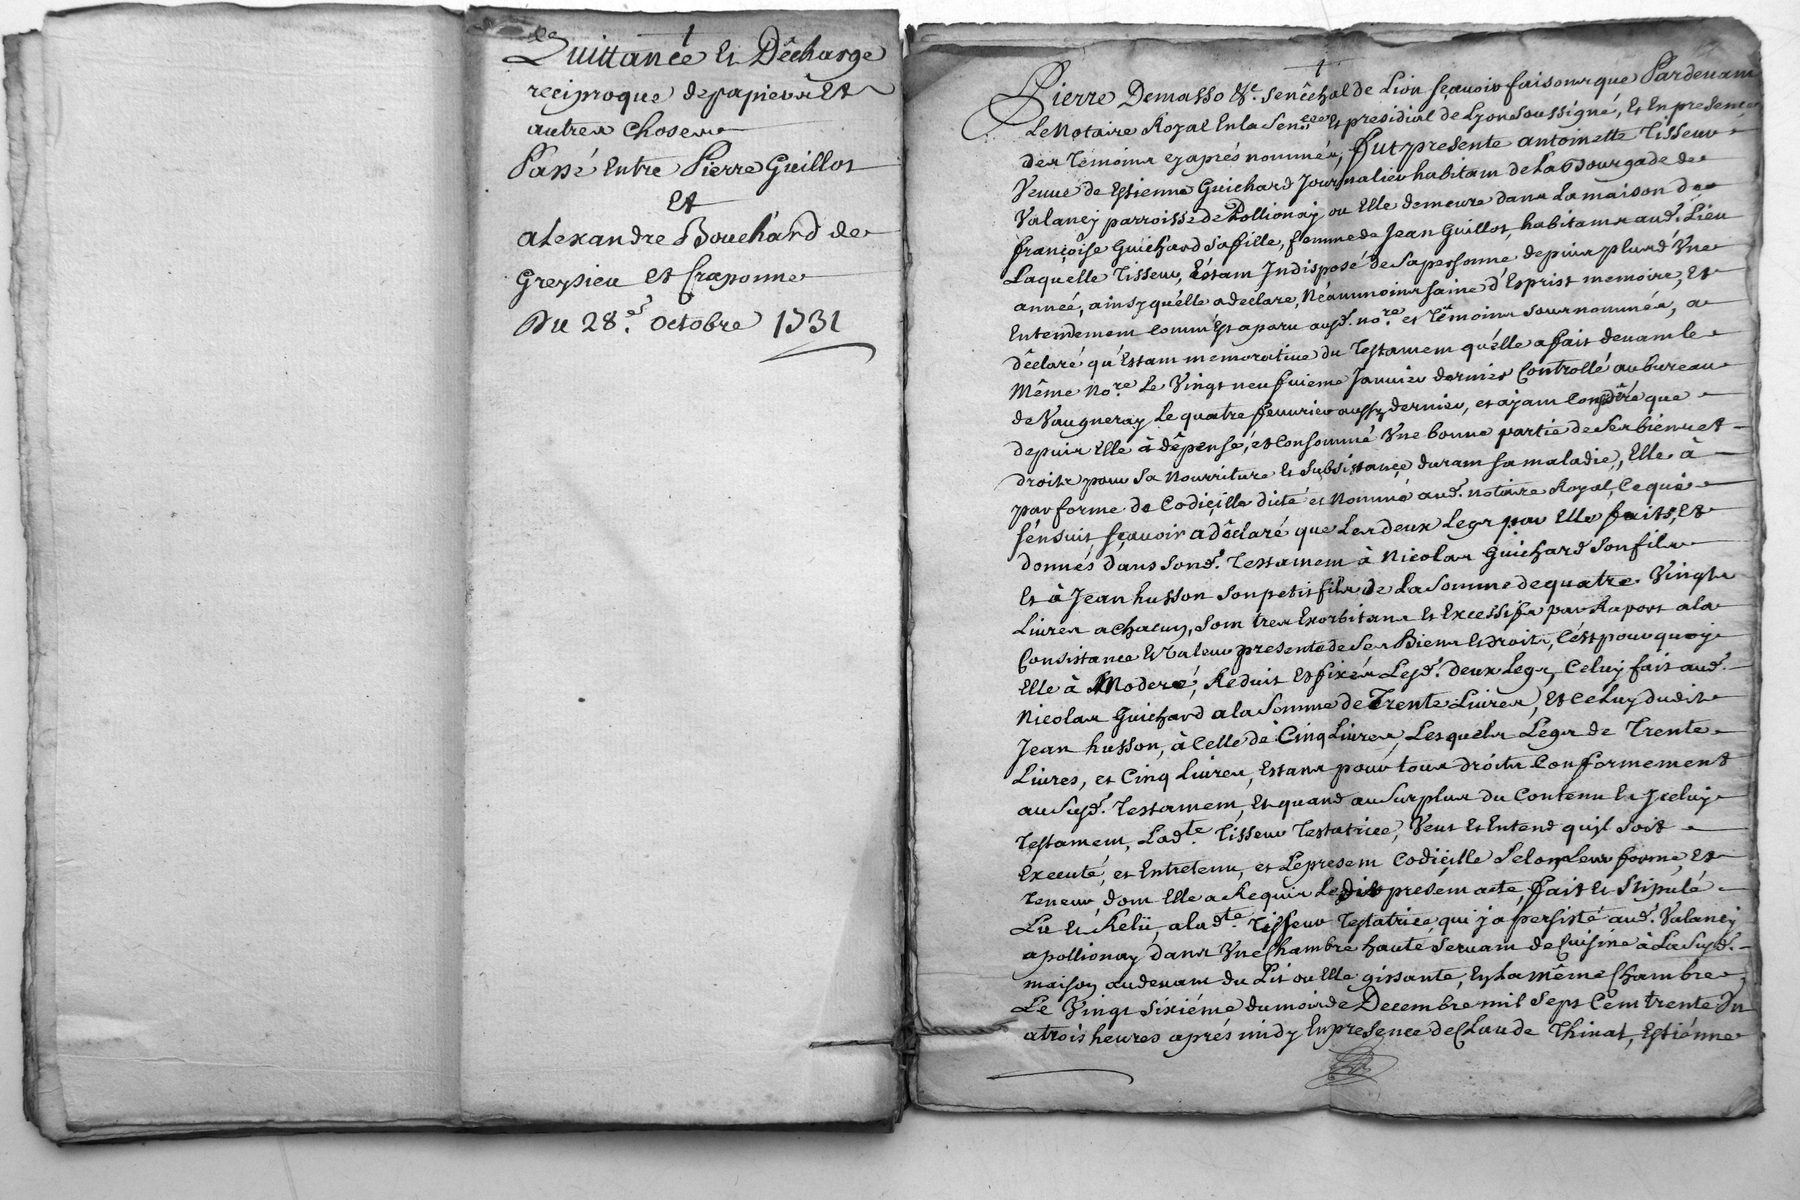 Quittance et Dêcharge
reciproque de papiers et
autres choses
Passé Entre Pierre Guillot
Et
alexandre Bouchard de
Greysieu et Craponne
Du 28.e octobre 1731
Pierre Demasso &c. senêchal de Lion sçavoir faisons que Pardevant
Le Notaire Royal En la Sen.cée et presidial de Lyon soussigné, et En presence
des Temoins cy aprés nommés, fut presente antoinette Tisseur
Veuve de Estienne Guichard Journalier habitant de La Bourgade de
Valancy parroisse de Pollionay ou Elle demeure dans La maison de
françoise Guichard sa fille, femme de Jean Guillot, habitants aud. Lieu
Laquelle Tisseur, Estant Indisposé de sa personne depuis plus d'Une
année, ainsy qu'elle a declare, Néanmoins saine d'Esprist memoire, Et
Entendement comm'Est aparu aud. no.re et Témoins sousnommés, a
dêclaré qu'Estant memorative du Testament qu'elle a fait devant le
Même No.re Le Vingt neufvieme Janvier dernier Controllé au bureau
de Vaugneray Le quatre fevvrier aussy dernier, et ayant Considéré que
depuis Elle à dêpensé, et Consommé Une bonne partie de Ses biens et
droits pour Sa Nourriture et Subsistançe durant sa maladie, Elle à
par forme de Codiçille dicté et Nommé aud. notaire Royal, Ce qui
s'ensuit sçavoir a dêclaré que Les deux Legs par Elle faits, Et
donnés dans Sond. Testament à Nicolas Guichard Son fils
Et à Jean husson Son petit fils de La Somme de quatre Vingts
Livres a chacun, Sont tres Exorbitans Et Excessifs par Raport a la
Consistance Et Valeur presente de Ses Biens Et droits, C'est pourquoy
Elle à Moderé, Reduit Et fixés Lesd. deux Legs, Celuy fait aud.
Nicolas Guichard a la Somme de Trente Livres, Et Celuy dudit
Jean husson, à Celle de Cinq Livres, Lesquels Legs de Trente
Livres, et Cinq Livres, Estans pour tous droits Conformement
au Susd. Testament, Et quand au Surplus du Contenu En Jceluy
Testament, Lad.te Tisseur Testatrice, Veut Et Entend qu'jl soit
Executé, et Entretenu, et Le present Codiçille Selon Leur forme, Et
Teneur, dont Elle a Requis Ledit present acte, fait Et Stipulé
Lu Et Relü, a lad.te Tisseur Testatrice qui j a persisté aud. Valancy
a pollionay dans Une Chambre haute, Servant de Cuisine à La Susd.
maison au devant du Lit ou Elle gissante, En La même Chambre
Le Vingt Sixiéme du mois de Decembre mil Sept Cent trente Un
a trois heures aprés midy En presence de Claude Thinat, Estiénne